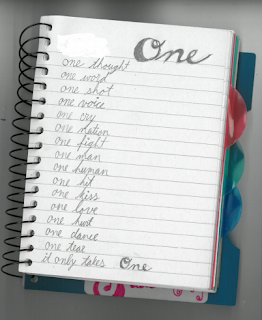 One
one thought
one word
one shot
one voice
one cry
one nation
one fight
one man
one human
one hit
one kiss
one love
one hurt
one dance
one tear
it only takes One